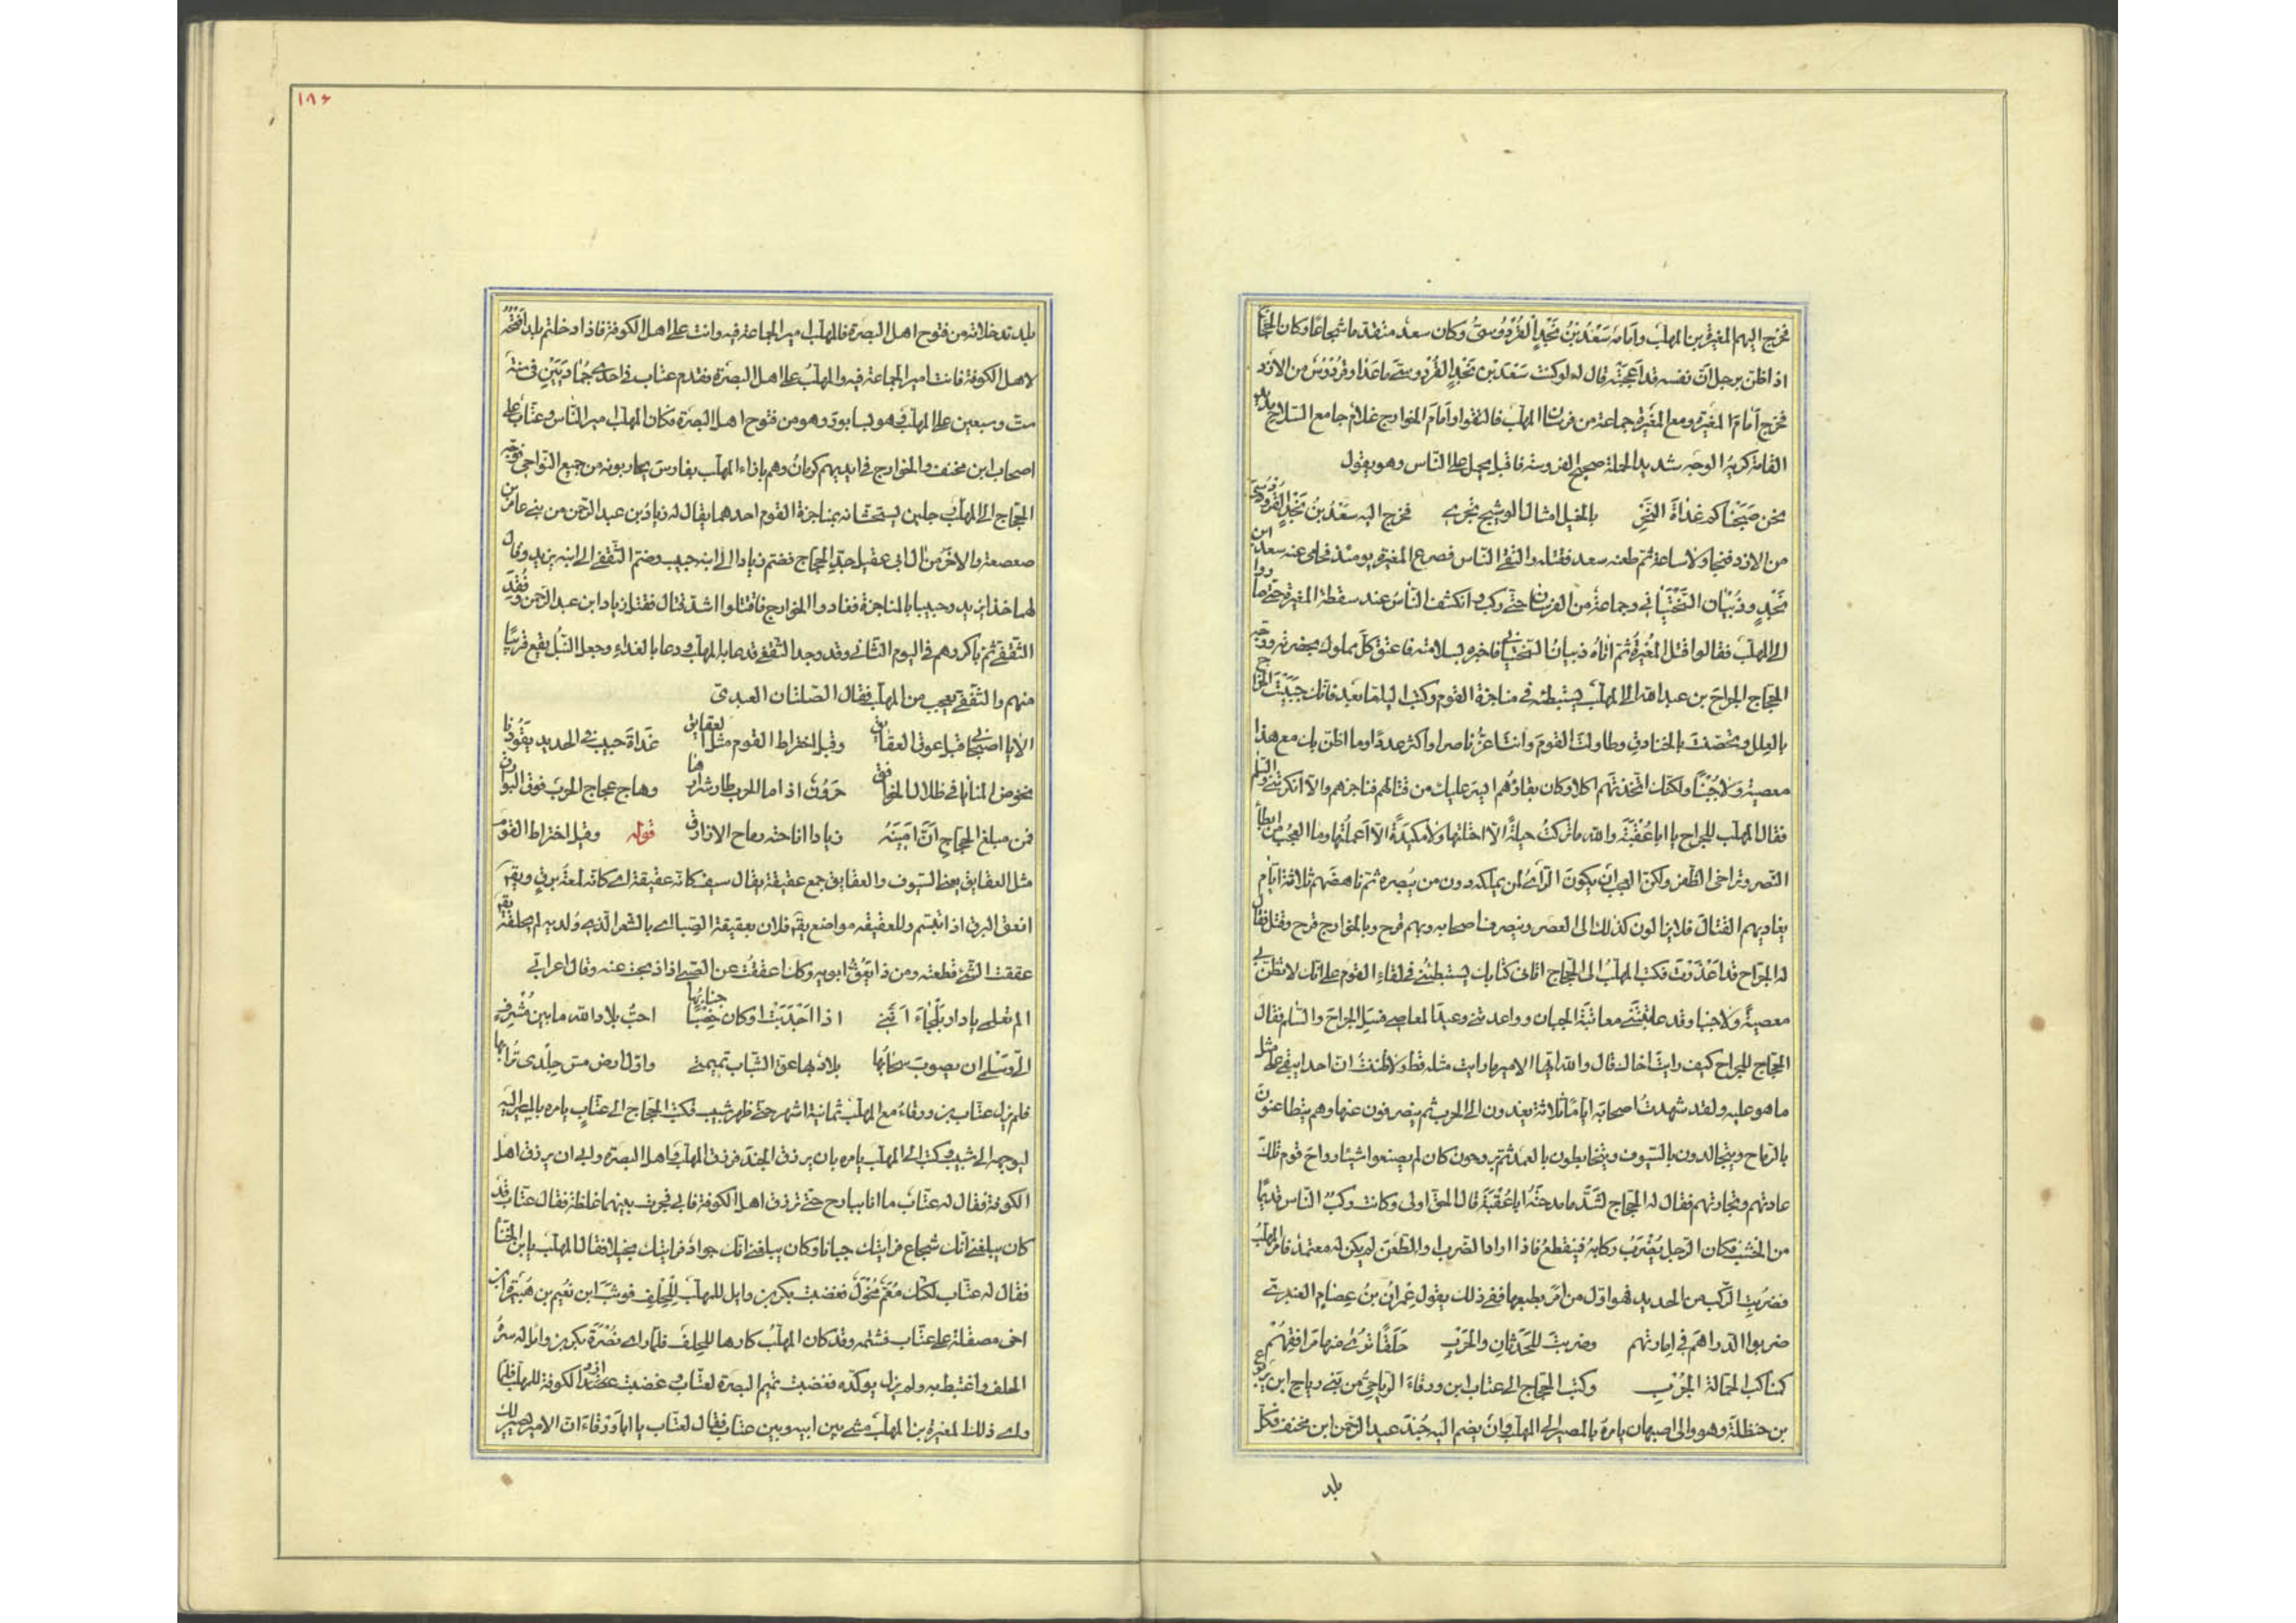 فخرج اليهم المغيرة بن المهلب وامامه سَعْدُ بْنُ نَجْدٍ القُرْدُوسىّ وكان سعد متقدما شجاعا وكان الحجاج
اذا ظن برجل ان نفسه قد اعجبته قال له لو كنت سَعْدَ بْن نَجْدٍ القُرْدوسى ما عَدَا وقُرْدُوس من الازد
فخرج اَمامَ المغيرة ومع المغيرة جماعة من فرسان المهلب فالتقوا وامامَ الخوارج غلام جامع السلاح مديد
القامة كريه الوجه شديد الحملة صحيح الفروسة فاقبل يحمل على الناس وهو يقول
نحن صَبَحْناكم غداةَ النَّحْرِ بالخيل امثال الوشيج تجرى فخرج اليه سَعْدُ بْنُ نَجْدٍ القردوسى ثم
من الازد فتجاولا ساعة ثم طعنه سعد فقتله والتقى الناس فصرع المغيرة يومئذ فحامى عنه سعد ابن
نَجْدٍ وذُبْيان السَّخْتِيانى وجماعة من الفرسان حتى ركب وانكشف الناس عند سقطة المغيرة حتى صاروا
الى المهلب فقالوا قتل المُغِيرَةُ ثم اتاه ذبيان السختيانى فاخبره بسلامته فاعتق كلَّ مملوك بحضرته ووجه
الحجاج الجراحَ بن عبد الله الى المهلب يستبطئه فى مناجزة القوم وكتب اليه اما بعد فانك جَبَيْتَ الخراج
بالعلل وتحصّنتَ بالخنادق وطاولتَ القومَ وانت اعزُّ ناصرا واكثر عددًا وما اظن بك مع هذا
معصيةً ولا جُبْنًا ولكنك اتخذتهم اكلا وكان بقاؤهم ايسر عليك من قتالهم فناجزهم والا انكرتنى والسلم
فقال المهلب للجراح يا ابا عُقْبَةَ والله ما تركتُ حيلةً الا احتلتها ولا مكيدةً الا اَعملتُها وما العجبُ من ابطاء
النصر وتراخى الظفر ولكن العجب ان يكونَ الرأىُ لمن يملكه دون من يُبصره ثم ناهضهم ثلاثة ايّام
يغاديهم القتالَ فلا يزالون كذلك الى العصر وينصرف اصحابه وبهم قرح وبالخوارج قرح وقتل فقال
له الجراح قد اَعْذَرْتَ فكتب المهلبُ الى الحجاج اتانى كتابك يستبطئنى فى لقاء القوم على انك لا تظن بى
معصيةً ولا جبنا وقد عاتبتنى معاتبة الجبان وواعدتنى وعيدَ المعاصى فسَلِ الجراحَ والسلم فقال
الحجاج للجراح كيف رايتَ اخاك قال والله ايها الامير ما رايت مثله قط ولا ظننتُ ان احدا يبقى على مثل
ما هو عليه ولقد شهدتُ اصحابَه ايامًا ثلاثة يغدون الى الحرب ثم ينصرفون عنها وهم يتطاعنون
بالرماح ويتجالدون بالسيوف ويتخابطون بالعمد ثم يروحون كان لم يصنعوا شيئا رواحَ قوم تلك
عادتهم وتجارتهم فقال له الحجاج لشدَّ ما مدحتَهُ ابا عُقْبَةَ قال الحق اولى وكانت ركب الناس قديمًا
من الخشب فكان الرجل يُضْرَبُ ركابه فينقطعُ فاذا اراد الضرب او الطعن لم يكن له معتمد فامر المهلبُ
فضُرِبتِ الركب من الحديد فهو اول من امر بطبعها ففى ذلك يقول عِمْرانُ بنُ عِصَامٍ العنزى
ضربوا الدراهمَ فى اِمارتهم وضربتَ للحَدَثانِ والحَرْبِ حَلَقًا تُرَى منها مَرَافِقُهُمْ
كمناكب الجمالة الجُرْبِ وكتب الحجاج الى عتاب ابن ورقاء الرياحى من بنى رياح ابن يربوع
بن حنظلة وهو والى اصبهان يامره بالمصير الى المهلب وان يضم اليه جُنْدَ عبد الرحمن ابن مخنف فكل
بلد
١٨۶
بلد تدخلانه من فتوح اهل البصرة فالمهلب امير الجماعة فيه وانت على اهل الكوفة فاذا دخلتم بلدًا فَتْحُهُ
لاهل الكوفة فانت امير الجماعة فيه والمهلبُ على اهل البصرة فقدم عتاب فى احدى جُمَادَيَيْنِ فى سنة
ست وسبعين على المهلب وهو بسابور وهو من فتوح اهل البصرة فكان المهلب امير الناس وعتّاب على
اصحاب ابن مخنف والخوارج فى ايديهم كرمانُ وهم بازاء المهلب بفارس يحاربونه من جميع النواحى فوجه
الحجاج الى المهلب رجلين يستحثّانه بمناجزة القوم احدهما يقال له زياد بن عبد الرحمن من بنى عامر بن
صعصعة والاخَر من آل ابى عقيل جدّ الحجاج فضم زيادا الى ابنه حبيب وضم الثقفى الى ابنه يزيد وقال
لهما خذا يزيد وحبيبا بالمناجزة فغادوا الخوارج فاقتتلوا اشد قتال فقتل زياد ابن عبد الرحمن وفُقِدَ
الثقفى ثم باكروهم فى اليوم الثانى وقد وجد الثقفى فدعا به المهلب ودعا بالغداء وجعل النبلُ يقع قريبًا
منهم والثقفى يعجب من المهلب فقال الصلتان العبدى
الا يا اصبحانى قبل عوق العقايق وقبل اختراط القوم مثل العقايق غداةَ حبيب فى الحديد يقودنا
نخوض المنايا فى ظلال الخوافق حَرُونٌ اذا ما الحرب طار شرارها وهاج عجاج الحرب فوق البوارق
فمن مبلغ الحجاجِ اَنَّ امينَه زيادا اطاحته رماح الازارق قوله وقبل اختراط القوم
مثل العقايق يعنى السيوف والعقايق جمع عقيقة يقال سيف كانه عقيقة اى كانه لمعةُ برقٍ ويقال
انعق البرق اذا تبسم وللعقيقة مواضع يقال فلان بعقيقة الصبا اى بالشعر الذى ولد به لم يحلقه يقال
عققت الشئ قطعته ومن ذا يَعُقُّ ابويه وكان عققتُ عن الصبى اذا ذبحت عنه وقال اعرابى
الم تعلمى يا دار بَلْجَاءَ اَنَّنى اذا اَجْدَبَتْ او كان خِصْبًا جنابُها احبُّ بلاد الله ما بين مُشْرِفٍ
الىَّ وسَلْمى ان يصوبَ سحابُها بلاد بها عق الشباب تميمتى واول ارض مسّ جلدى تُرابُها
فلم يزل عتّاب بن ورقاءَ مع المهلب ثمانية اشهر حتى ظهر شبيب فكتب الحجاج الى عتّابٍ يامره بالمصير اليه
ليوجهه الى شبيب وكتب الى المهلب يامره بان يرزق الجند فرزق المهلب اهل البصرة وابى ان يرزق اهل
الكوفة فقال له عتّاب ما انا ببارح حتى ترزق اهل الكوفة فابى فجرت بينهما غلظة فقال عتاب قد
كان يبلغنى انك شجاع فرايتك جبانا وكان يبلغنى انك جواد فرايتك بخيلا فقال له المهلب يا ابن اللخناء
فقال له عتّاب لكنك مُعَمّ مُخْوَل فغضبت بكر بن وايل للمهلب لِلْحِلفِ فوثب ابن نُعَيم بن هُبَيْرَة ابن
اخى مصقلة على عتاب فشتمه وقد كان المهلبُ كارها للحِلفَ فلما راى نُصْرَةَ بكر بن وايل له سرّهُ
الحلف واغتبط به ولم يزل يوكّده فغضبت تميم البصرة لعتّاب وغضبت ازد الكوفة للمهلب فلما
راى ذلك المغيرة بن المهلب مشى بين ابيه وبين عتاب فقال لعتّاب يا ابا وَرْقاءَ ان الامير يصير لك